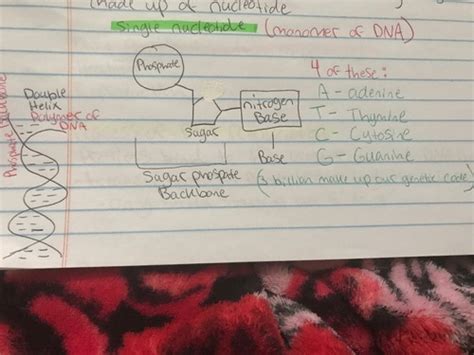 (made up of nucleotide
single nucleotide (monomer of DNA)
Phosphate
sugar
nitrogen
Base
Base
Sugar phospate
Backbone
4 of these:
A - adenine
T - Thymine
C - Cytosine
G - Guanine
(3 billion make up our genetic code)
Double
Helix
Polymer of
DNA
Phosphate Backbone